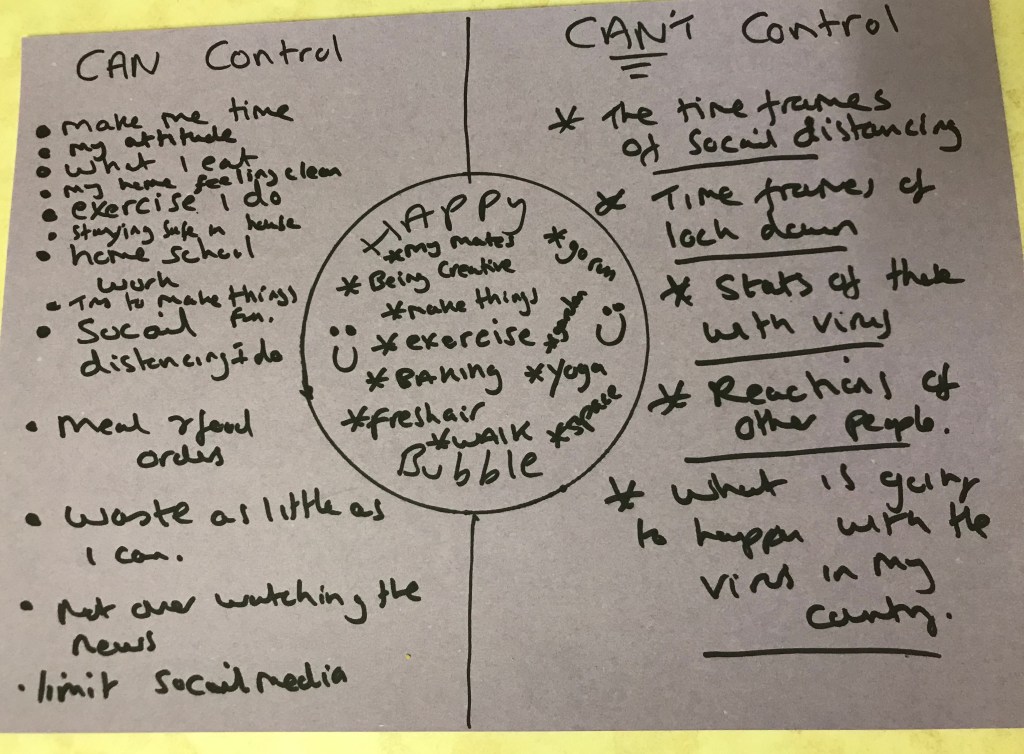 CAN Control
• make me time
• my attitude
• what I eat
• my home feeling clean
• exercise I do
• staying safe in house
• home school
work
• Try to make things
fun.
• Socail
distancing I do
• Meal & food
orders
• waste as little as
I can.
• Not over watching the
news
• limit socail media
HAPPY
*my mates
*go run
*Being Creative
*make things
*exercise
*BAKING
*yoga
*freshair
*WALK
*space
Bubble
CAN'T Control
* The time frames
of socail distancing
* Time frames of
lock down
* Stats of those
with virus
* Reactions of
other people.
* what is going
to happen with the
virus in my
country.